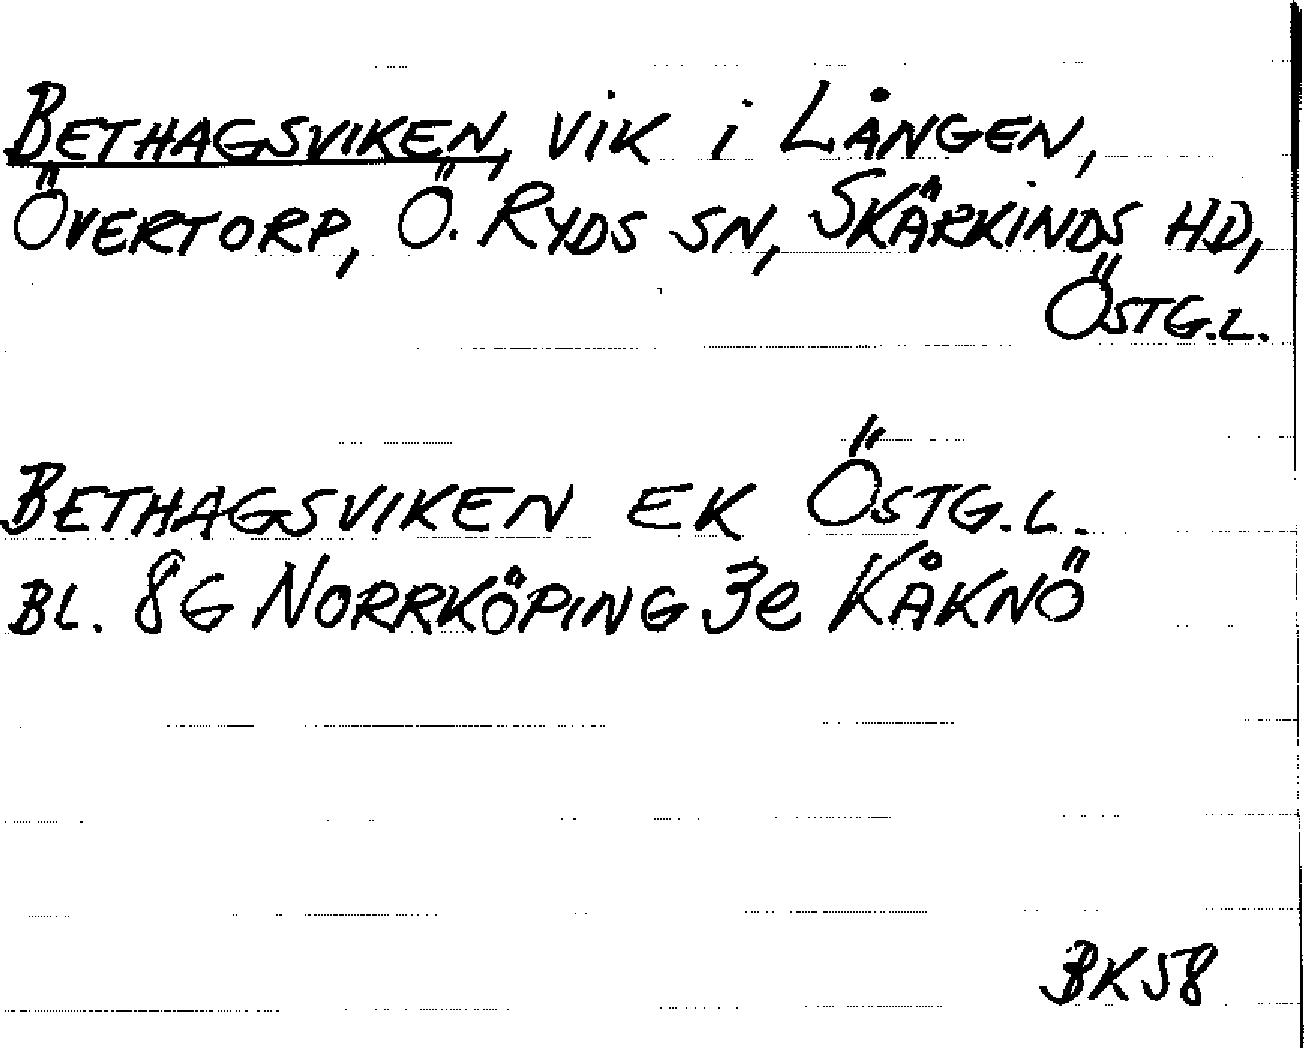 BETHAGSVIKEN, VIK I LÅNGEN,
ÖVERTORP, Ö. RYDS SN, SKÄRKINDS HD,
ÖSTG.L.
BETHAGSVIKEN EK ÖSTG.L.
BL. 8G NORRKÖPING 3e KÅKNÖ
BK58